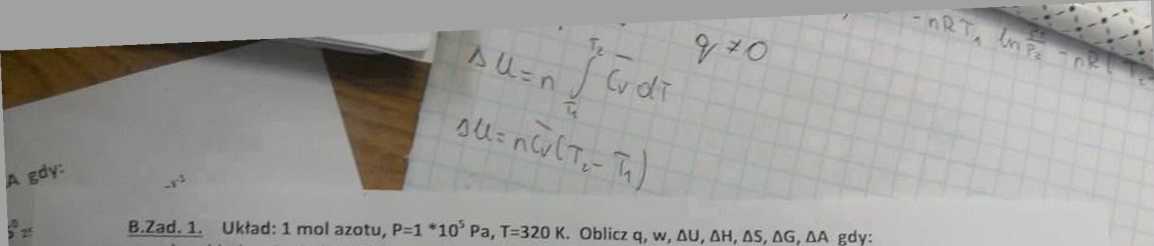 q ≠ 0
- nRT₁ ln
ΔU = n ∫ T₂ T₁ C̄v dT
ΔU = n C̄v (T₂ - T₁)
A gdy:
B.Zad. 1. Układ: 1 mol azotu, P=1 *10⁵ Pa, T=320 K. Oblicz q, w, ΔU, ΔH, ΔS, ΔG, ΔA gdy: